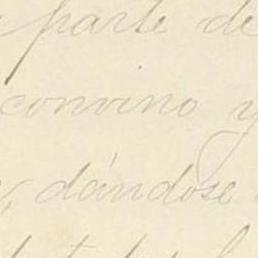 parte de
convino y
dándose